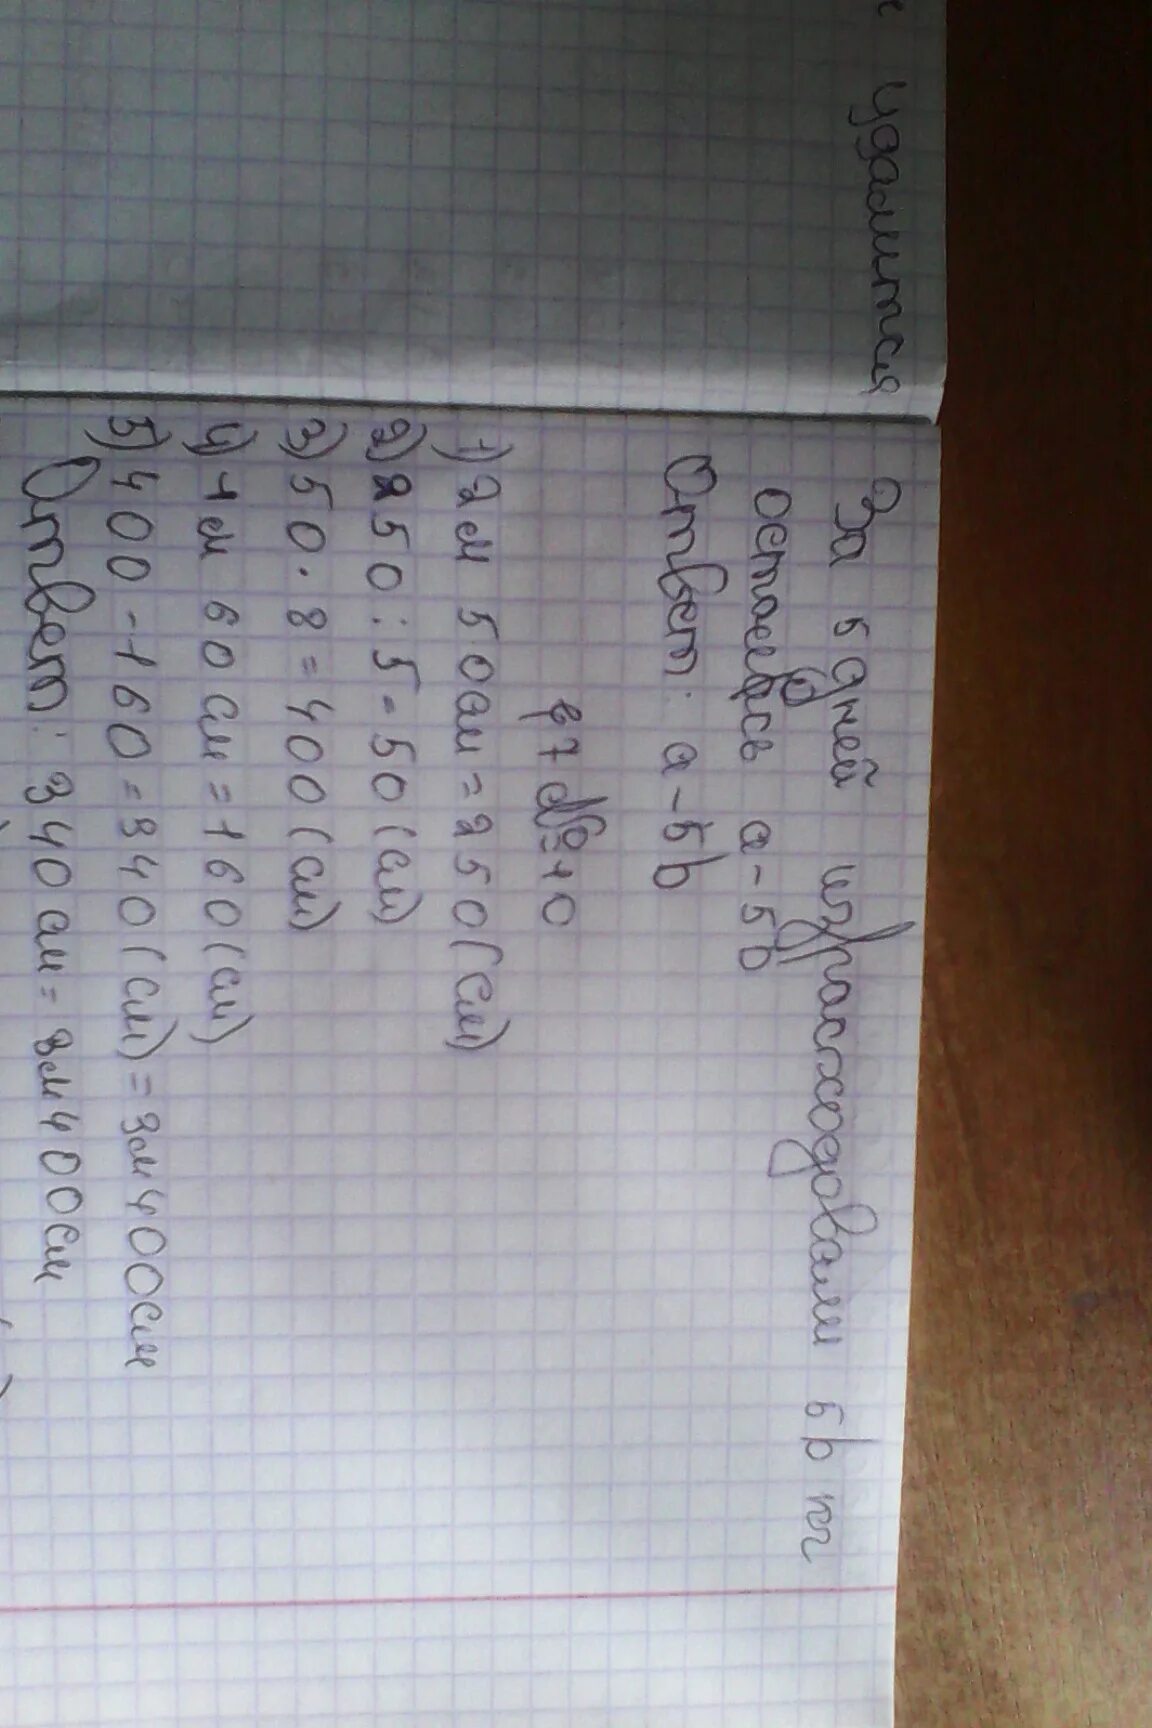 удалится
За 5 дней израсходовали 5b кг
осталась a-5b
Ответ: a-5b
р7 №10
1) 2м 50см = 250(см)
2) 250:5=50(см)
3) 50·8=400(см)
4) 1м 60см=160(см)
5) 400-160=340(см)=3м400см
Ответ: 340см=3м400см